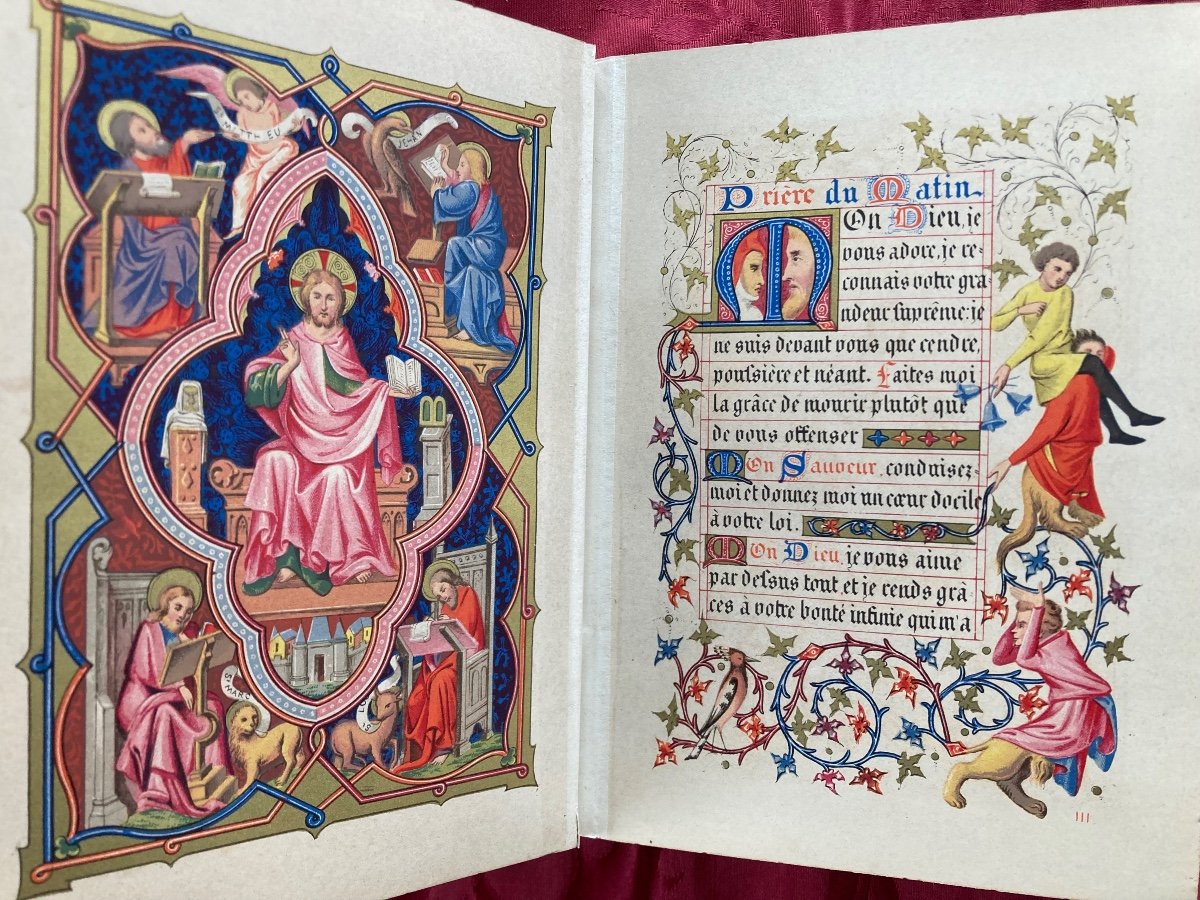 MATTHEU
S·MARC
Prière du Matin.
MOn Dieu, je
vous adore, je re-
connais votre gra
ndeur ſuprême: je
ne suis devant vous que cendre,
pouſsière et néant. Faites moi
la grâce de mourir plutôt que
de vous offenser
Mon Sauveur, conduisez-
moi et donnez moi un cœur docile
à votre loi.
Mon Dieu, je vous aime
par deſsus tout et je rends grâ-
ces à votre bonté infinie qui m'a
III